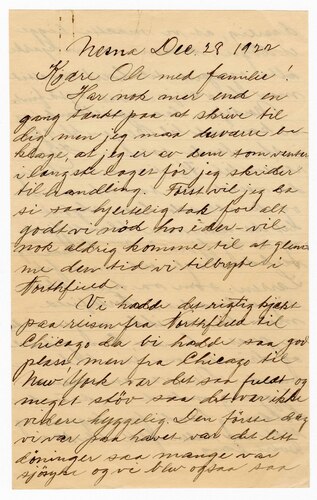 Nesna Dec. 28 1922
Kjære Ole med familie!
Har nok mer end en
gang tænkt paa at skrive til
dig men jeg maa desværre be
klage, at jeg er av dem som venter
i længste laget før jeg skrider
til handling. Først vil jeg da
si saa hjertelig tak for alt
godt vi nöd hos ider – vil
nok aldrig komme til at glem
me den tid vi tilbragte i
Northfield.
Vi hadde det rigtig kjækt
paa reisen fra Northfield til
Chicago da vi hadde saa god
plass men fra Chicago til
New York var det saa fuldt og
meget stöv saa det var ikke
videre hyggelig. Den förste dag
vi var paa havet var det litt
dönninger saa mange var
sjösyke og vi blev ogsaa saa